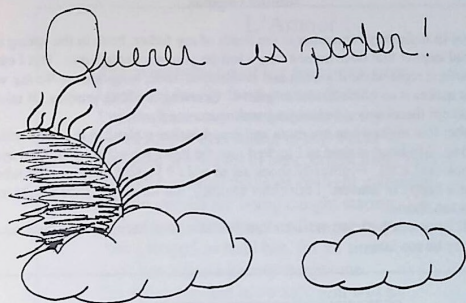 Querer is poder!